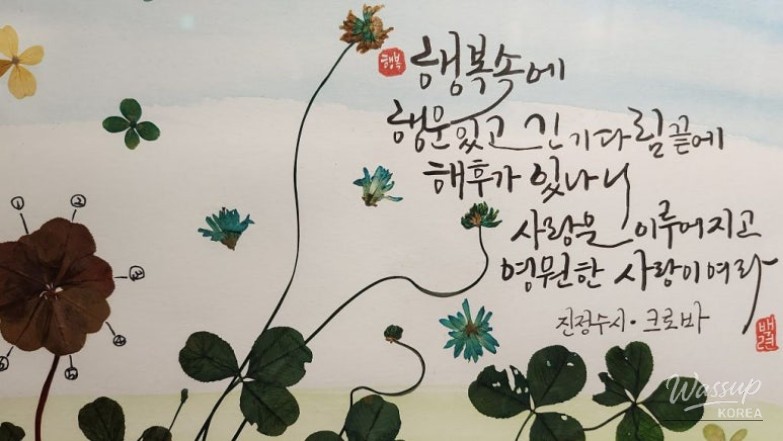 행복
행복속에
행운있고 긴기다림끝에
해후가 있나니
사랑은 이루어지고
영원한 사랑이여라
진정수시·크로바
백련
Wassup
KOREA